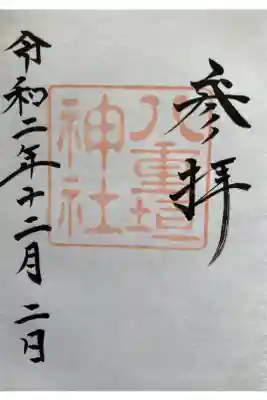 参拝
八重垣
神社
令和二年十二月二日